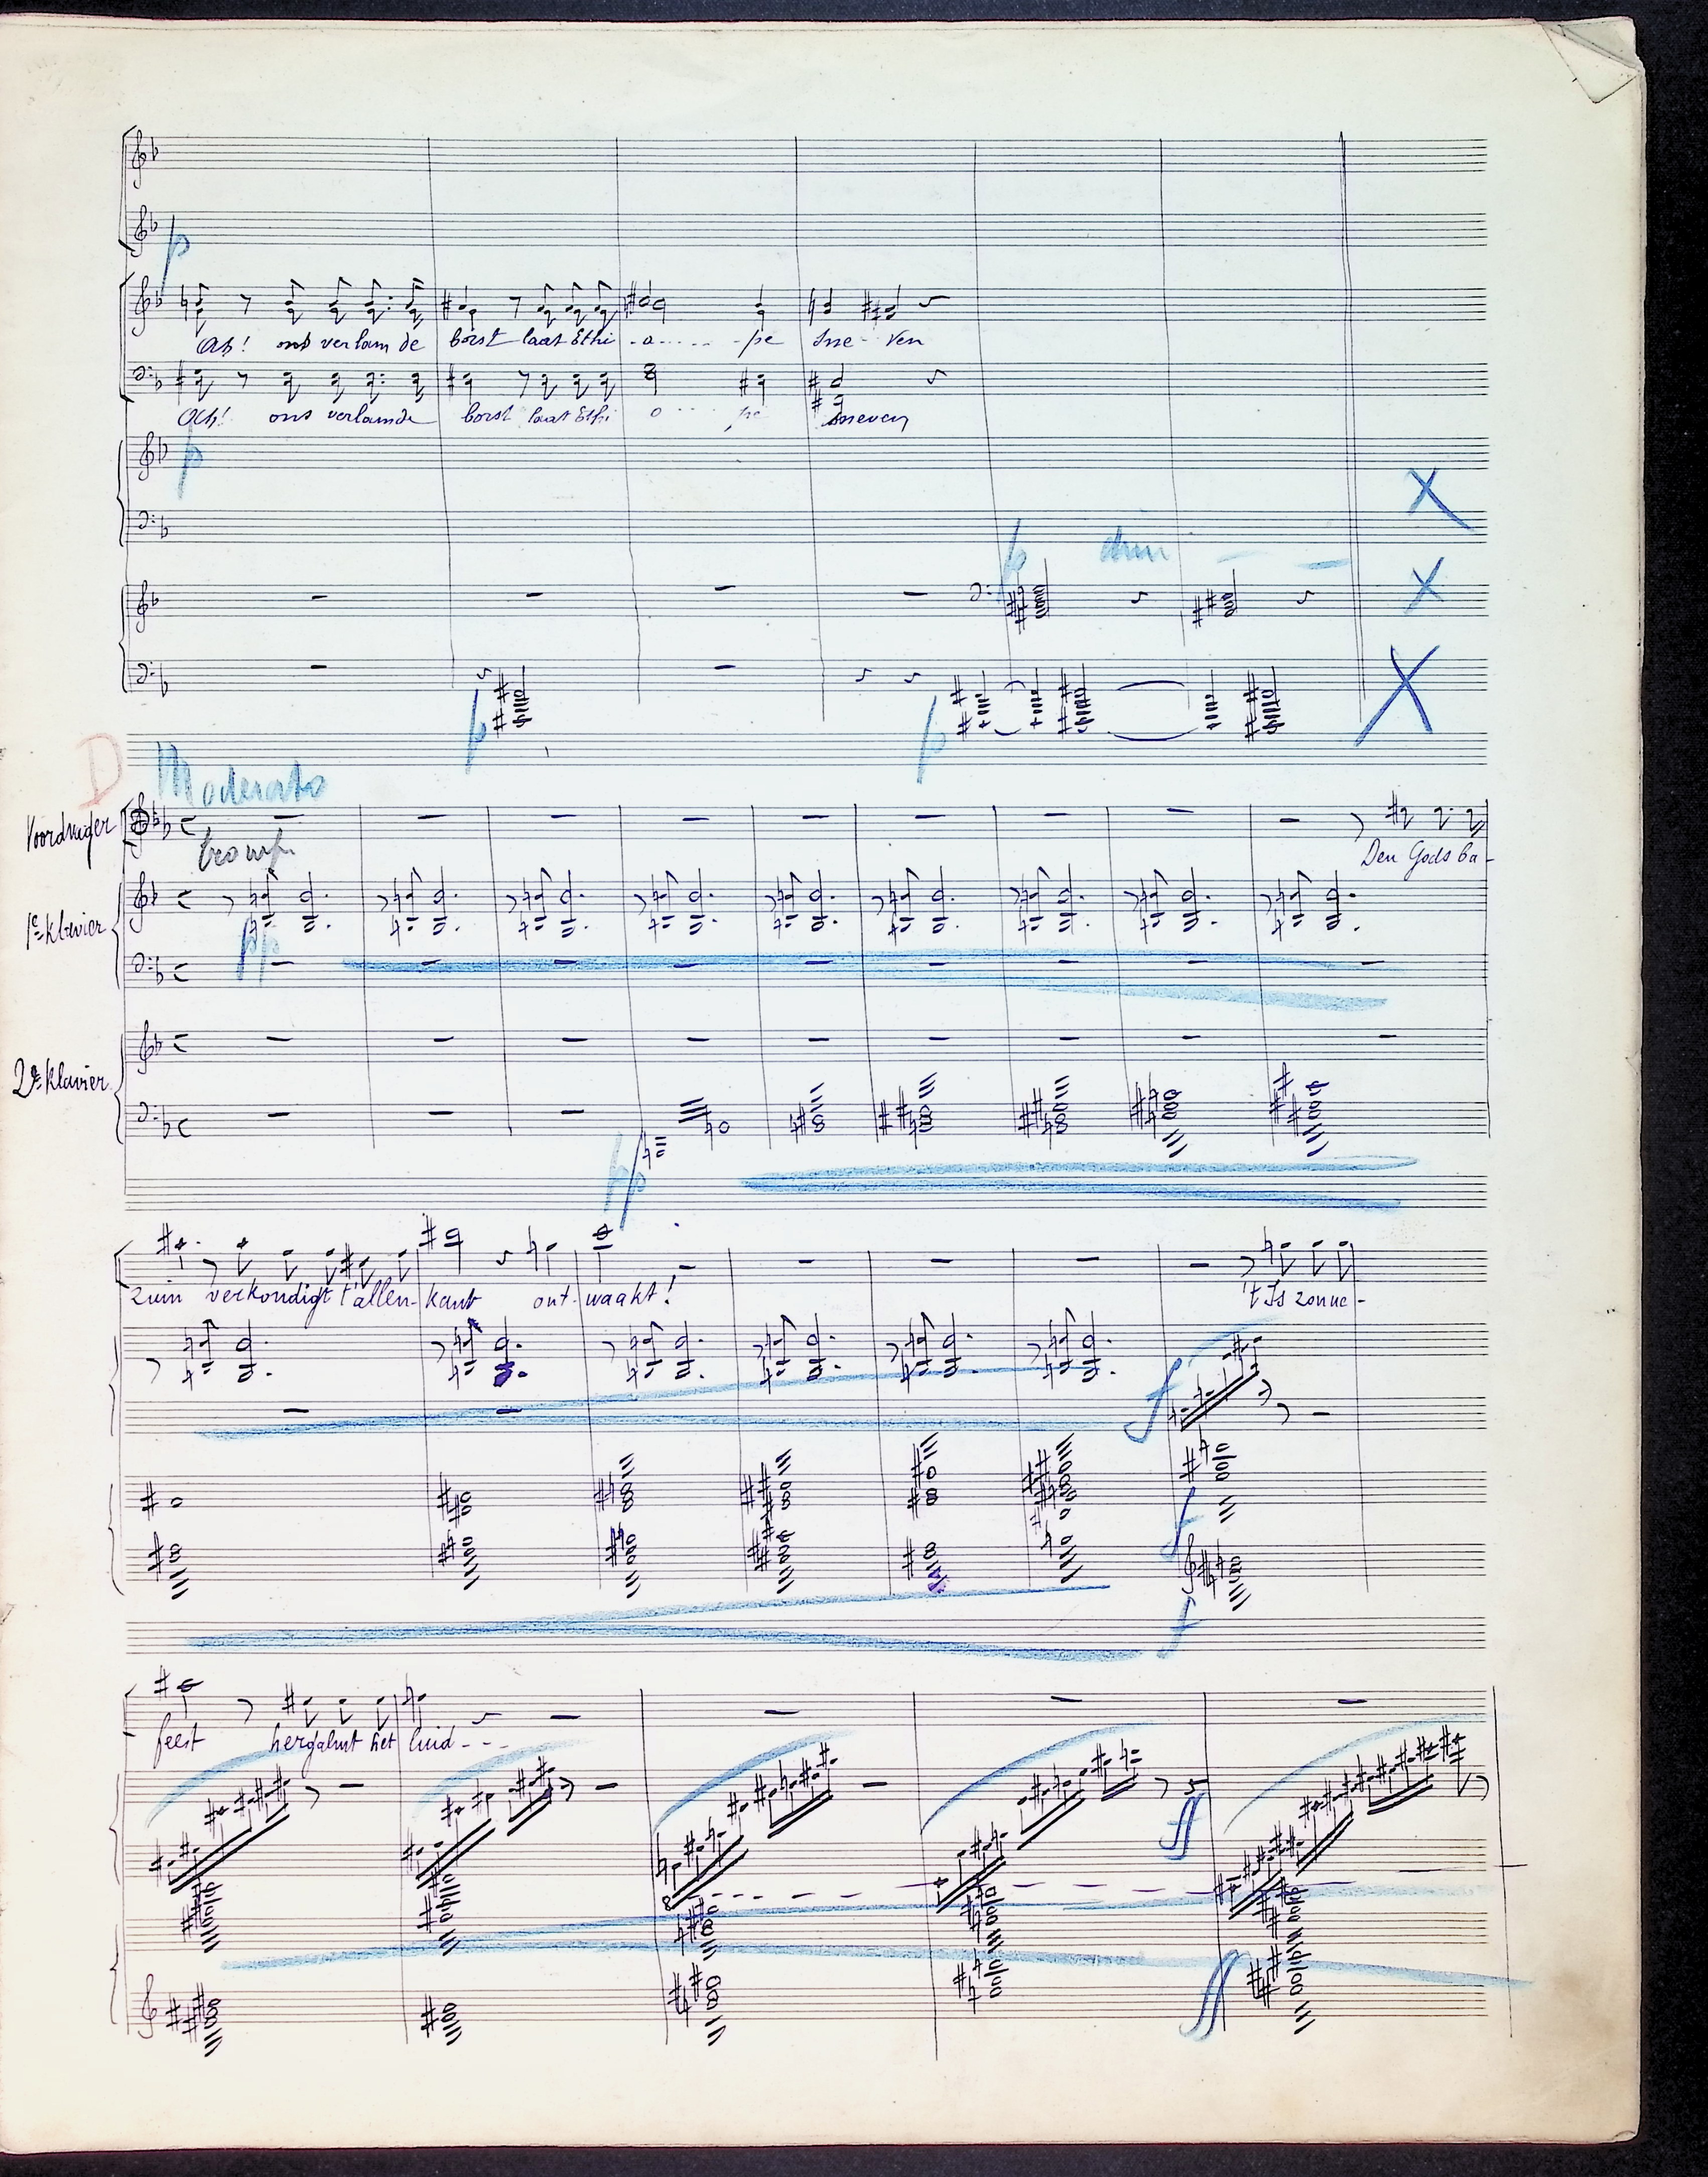 p
Ach! ons verlam de borst laat Ethi - o ...... - pe sne - ven
Ach! ons verlamde borst laat Ethi o ... pe sneven
p
p dim
p p
D Moderato
Voordrager
tromp.
Den Gods ba -
1e klavier
pp
2e klavier
pp
zuin verkondigt t'allen - kant ont - waakt! 't Is zonne -
f
f
f
feest hergalmt het luid - - -
ff
8
ff